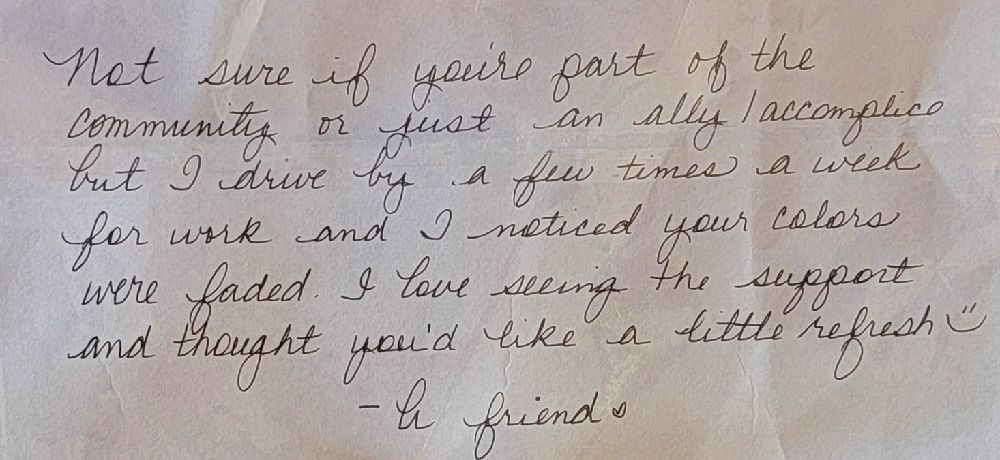 Not sure if you're part of the
community or just an ally/accomplice
but I drive by a few times a week
for work and I noticed your colors
were faded. I love seeing the support
and thought you'd like a little refresh ü
- A friend ♥